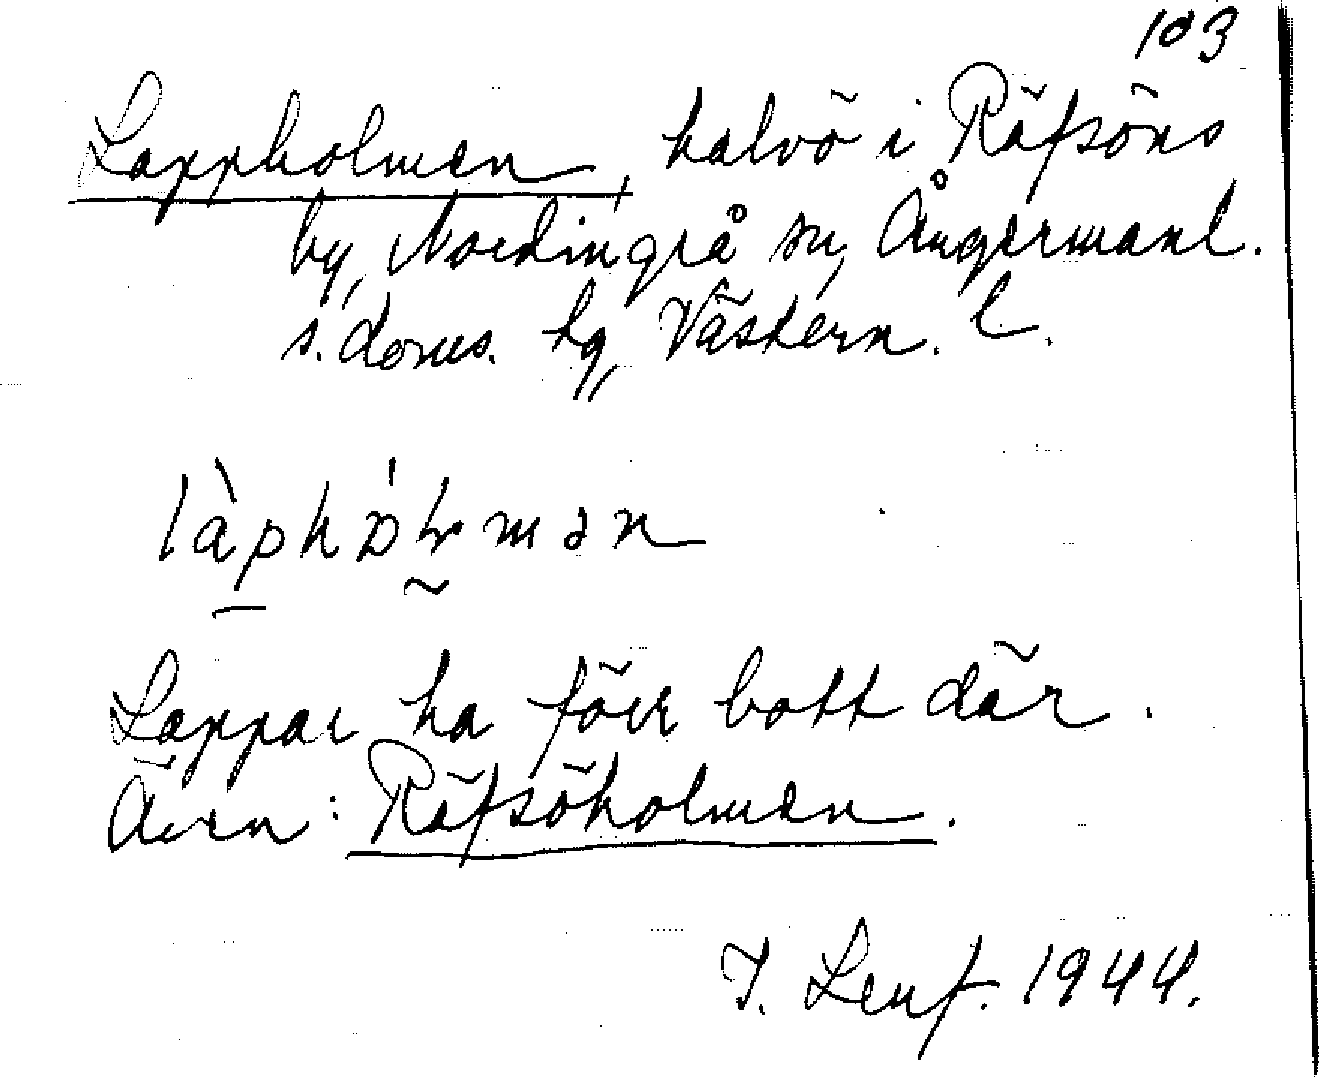 103
Lappholmen, halvö i Räfsöns
by, Nordingrå sn, Ångermanl.
s. doms. hg, Västern. l.
Lappar ha förr bott där.
Även: Räfsöholmen.
J. Lenf. 1944.